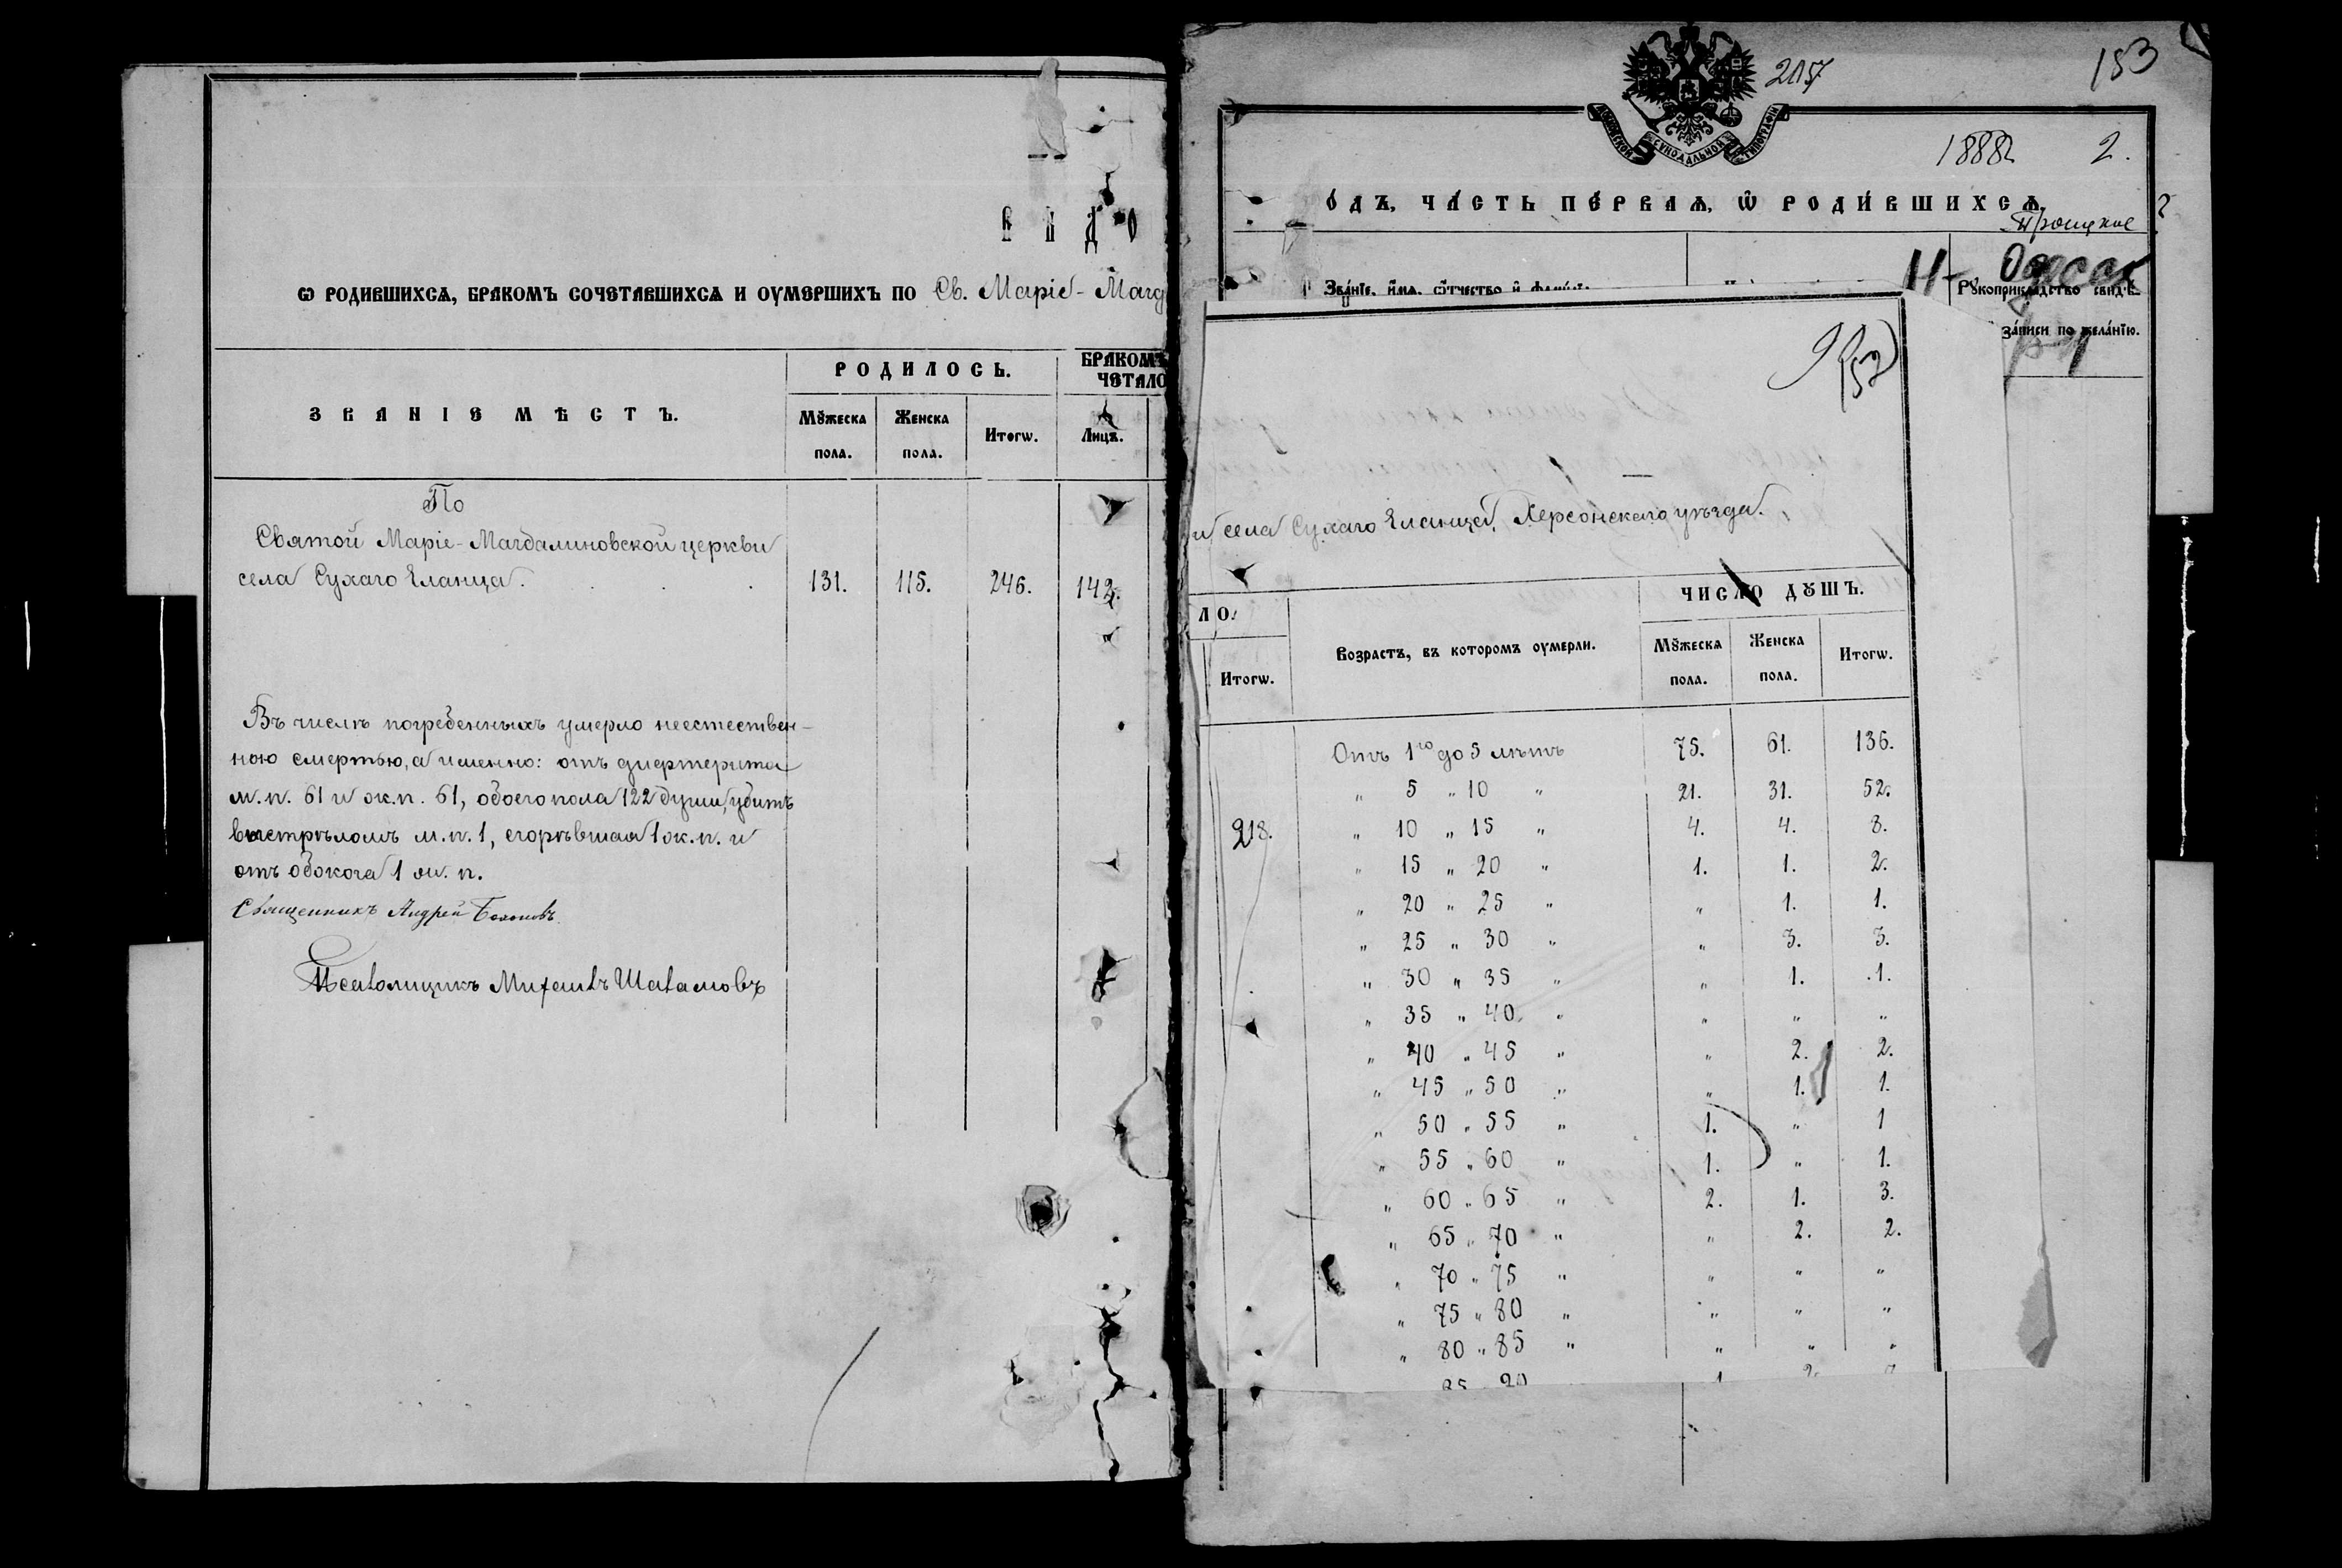 ВѢДО
Ѡ РОДИВШИХСѦ, БРАКОМЪ СОЧЕТАВШИХСѦ И ОУМЕРШИХЪ ПО Св. Маріе-Магд
ЗВАНІЕ МѢСТЪ.
РОДИЛОСЬ.
БРАКОМЪ
ЧЕТАЛО
Мꙋжеска пола.
Женска пола.
Итогѡ.
Лицъ.
По
Святой Маріе-Магдалиновской церкви
села Сухаго Еланца. 131. 115. 246. 142.
Въ числѣ погребенныхъ умерло неестествен-
ною смертью, а именно: отъ дифтерита
м.п. 61 и ж.п. 61, обоего пола 122 души, убитъ
выстрѣломъ м.п. 1, сгорѣвшая 1 ж.п. и
отъ обжога 1 м. п.
Священникъ Андрей
Псаломщикъ Михаилъ Шаламовъ
207
153
МОСКОВСКОЙ СѴНОДАЛЬНОЙ ТИПОГРАФІИ
1888 2.
О́ДЪ, ЧА́СТЬ ПЕ́РВАѦ, Ѡ҆ РОДИ́ВШИХСѦ.
Троицкое
Одесса
Зва́нїе, и҆́мѧ, ѻ҆́тчество и҆ фамилїѧ
Рꙋкоприкладство свидѣ
за́писи по жела́нїю.
152
и села Сухаго Еланца, Херсонскаго уѣзда.
ЛО.
Итогѡ.
Возрастъ, въ которомъ оумерли.
ЧИСЛО ДꙊШЪ.
Мꙋжеска пола.
Женска пола.
Итогѡ.
Отъ 1го до 5 лѣтъ 75. 61. 136.
" 5 " 10 " 21. 31. 52.
218. " 10 " 15 " 4. 4. 8.
" 15 " 20 " 1. 1. 2.
" 20 " 25 " " 1. 1.
" 25 " 30 " " 3. 3.
" 30 " 35 " " 1. 1.
" 35 " 40 " " " "
" 40 " 45 " " 2. 2.
" 45 " 50 " " 1. 1.
" 50 " 55 " 1. " 1
" 55 " 60 " 1. " 1.
" 60 " 65 " 2. 1. 3.
" 65 " 70 " " 2. 2.
" 70 " 75 " " " "
" 75 " 80 " " " "
" 80 " 85 " " " "
85 " 90 1 2